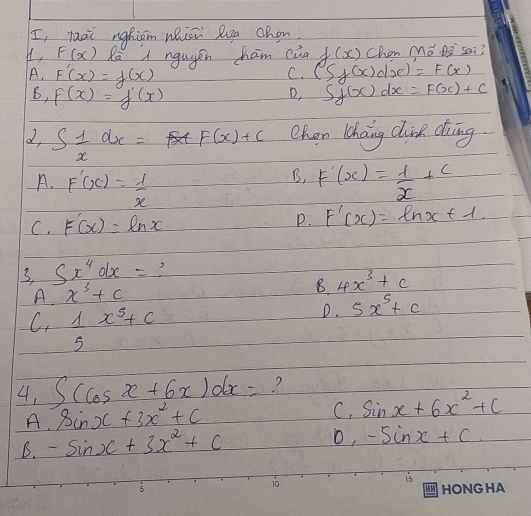 I, trắc nghiệm nhiều lựa chọn.
1, F(x) là 1 nguyên hàm của f(x) chọn Mđ đề sai?
A. F'(x) = f(x)
C. (∫f(x)dx)' = F(x)
B, F(x) = f'(x)
D, ∫f(x)dx = F(x) + C
2, ∫ 1/x dx = F(x) + C Chọn khẳng định đúng.
A. F'(x) = 1/x
B, F'(x) = 1/x + C
C. F'(x) = lnx
D. F'(x) = lnx + 1.
3, ∫x⁴ dx = ?
A. x³ + C
B. 4x³ + C
C, 1/5 x⁵ + C
D. 5x⁵ + C
4, ∫(cos x + 6x)dx = ?
A. Sinx + 3x² + C
C, Sin x + 6x² + C
B. - Sinx + 3x² + C
D, - Sinx + C.
5 10 15
HH HONG HA